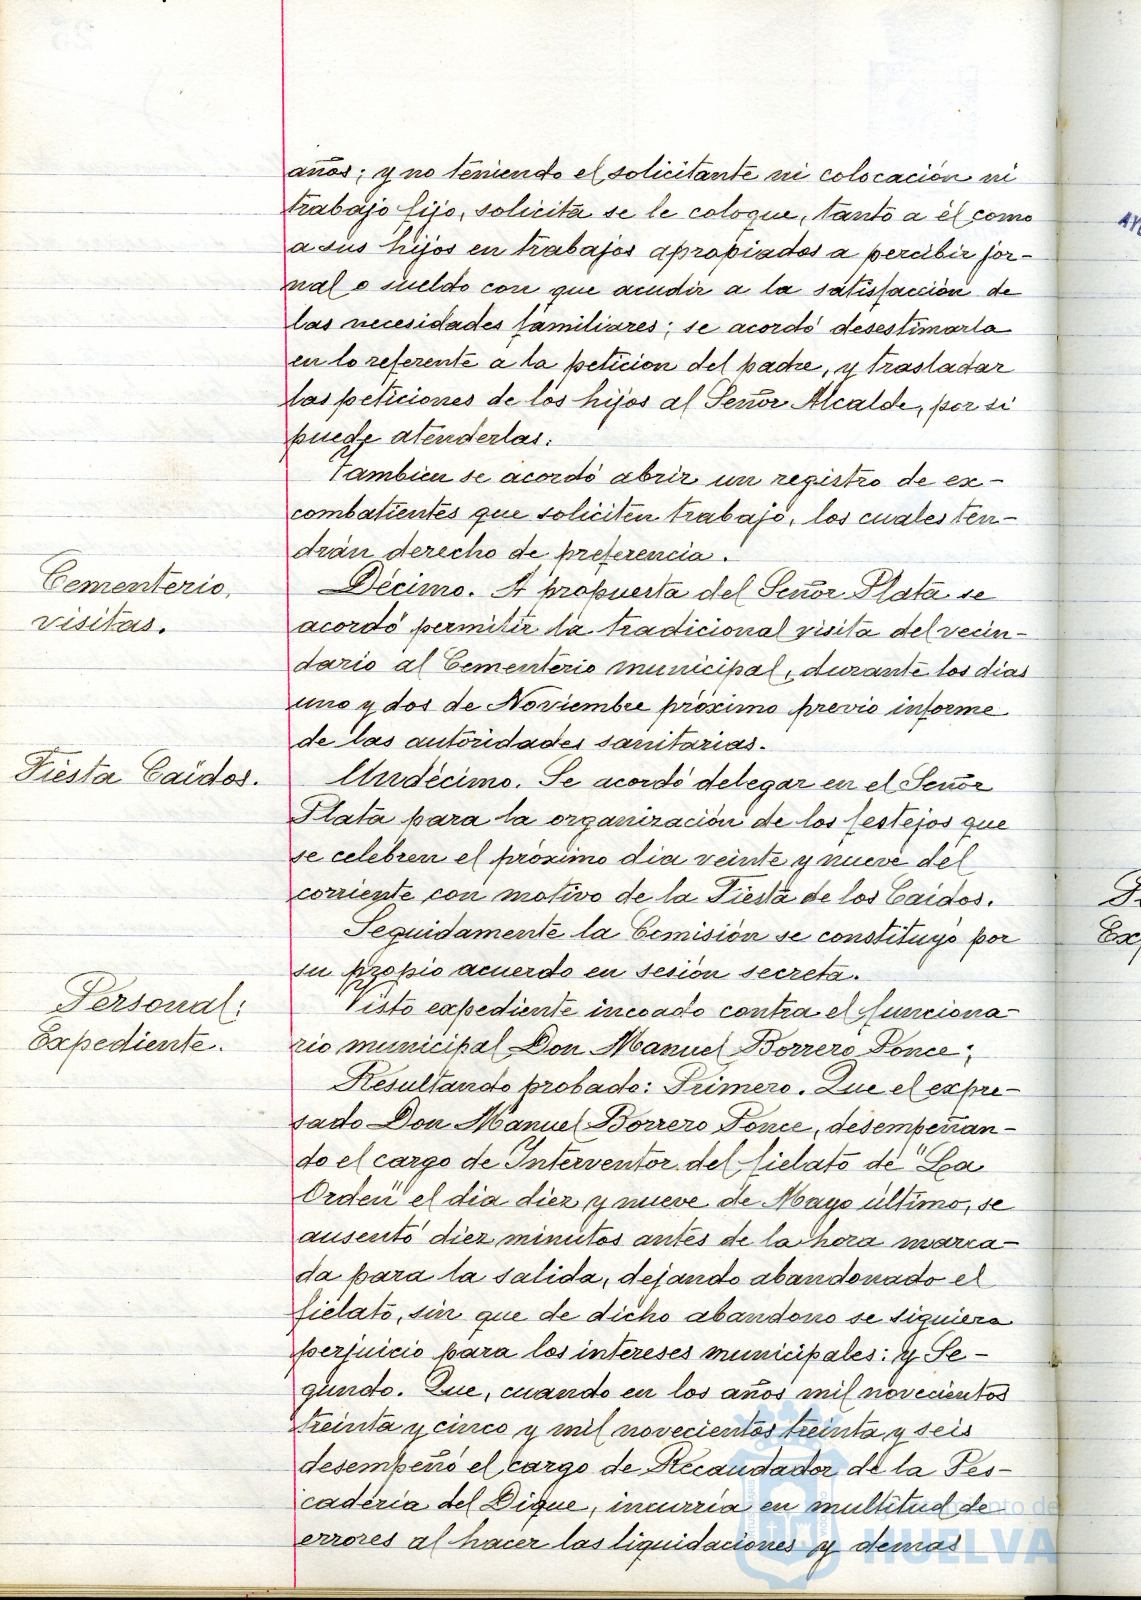 años; y no teniendo el solicitante ni colocación ni
trabajo fijo, solicita se le coloque, tanto a él como
a sus hijos en trabajos apropiados a percibir jor-
nal o sueldo con que acudir a la satisfacción de
las necesidades familiares; se acordó desestimarla
en lo referente a la peticion del padre, y trasladar
las peticiones de los hijos al Señor Alcalde, por si
puede atenderlas.
Tambien se acordó abrir un registro de ex-
combatientes que soliciten trabajo, los cuales ten-
drán derecho de preferencia.
Cementerio,
visitas.
Décimo. A propuesta del Señor Plata se
acordó permitir la tradicional visita del vecin-
dario al Cementerio municipal, durante los dias
uno y dos de Noviembre próximo previo informe
de las autoridades sanitarias.
Fiesta Caidos.
Undécimo. Se acordó delegar en el Señor
Plata para la organización de los festejos que
se celebren el próximo dia veinte y nueve del
corriente con motivo de la Fiesta de los Caidos.
Seguidamente la Comisión se constituyó por
su propio acuerdo en sesión secreta.
Personal:
Expediente.
Visto expediente incoado contra el funciona-
rio municipal Don Manuel Borrero Ponce;
Resultando probado: Primero. Que el expre-
sado Don Manuel Borrero Ponce, desempeñan-
do el cargo de Interventor del fielato de "La
Orden" el dia diez y nueve de Mayo último, se
ausentó diez minutos antes de la hora marca-
da para la salida, dejando abandonado el
fielato, sin que de dicho abandono se siguiera
perjuicio para los intereses municipales: y Se-
gundo. Que, cuando en los años mil novecientos
treinta y cinco y mil novecientos treinta y seis
desempeñó el cargo de Recaudador de la Pes-
caderia del Dique, incurria en multitud de
errores al hacer las liquidaciones y demas
HUELVA